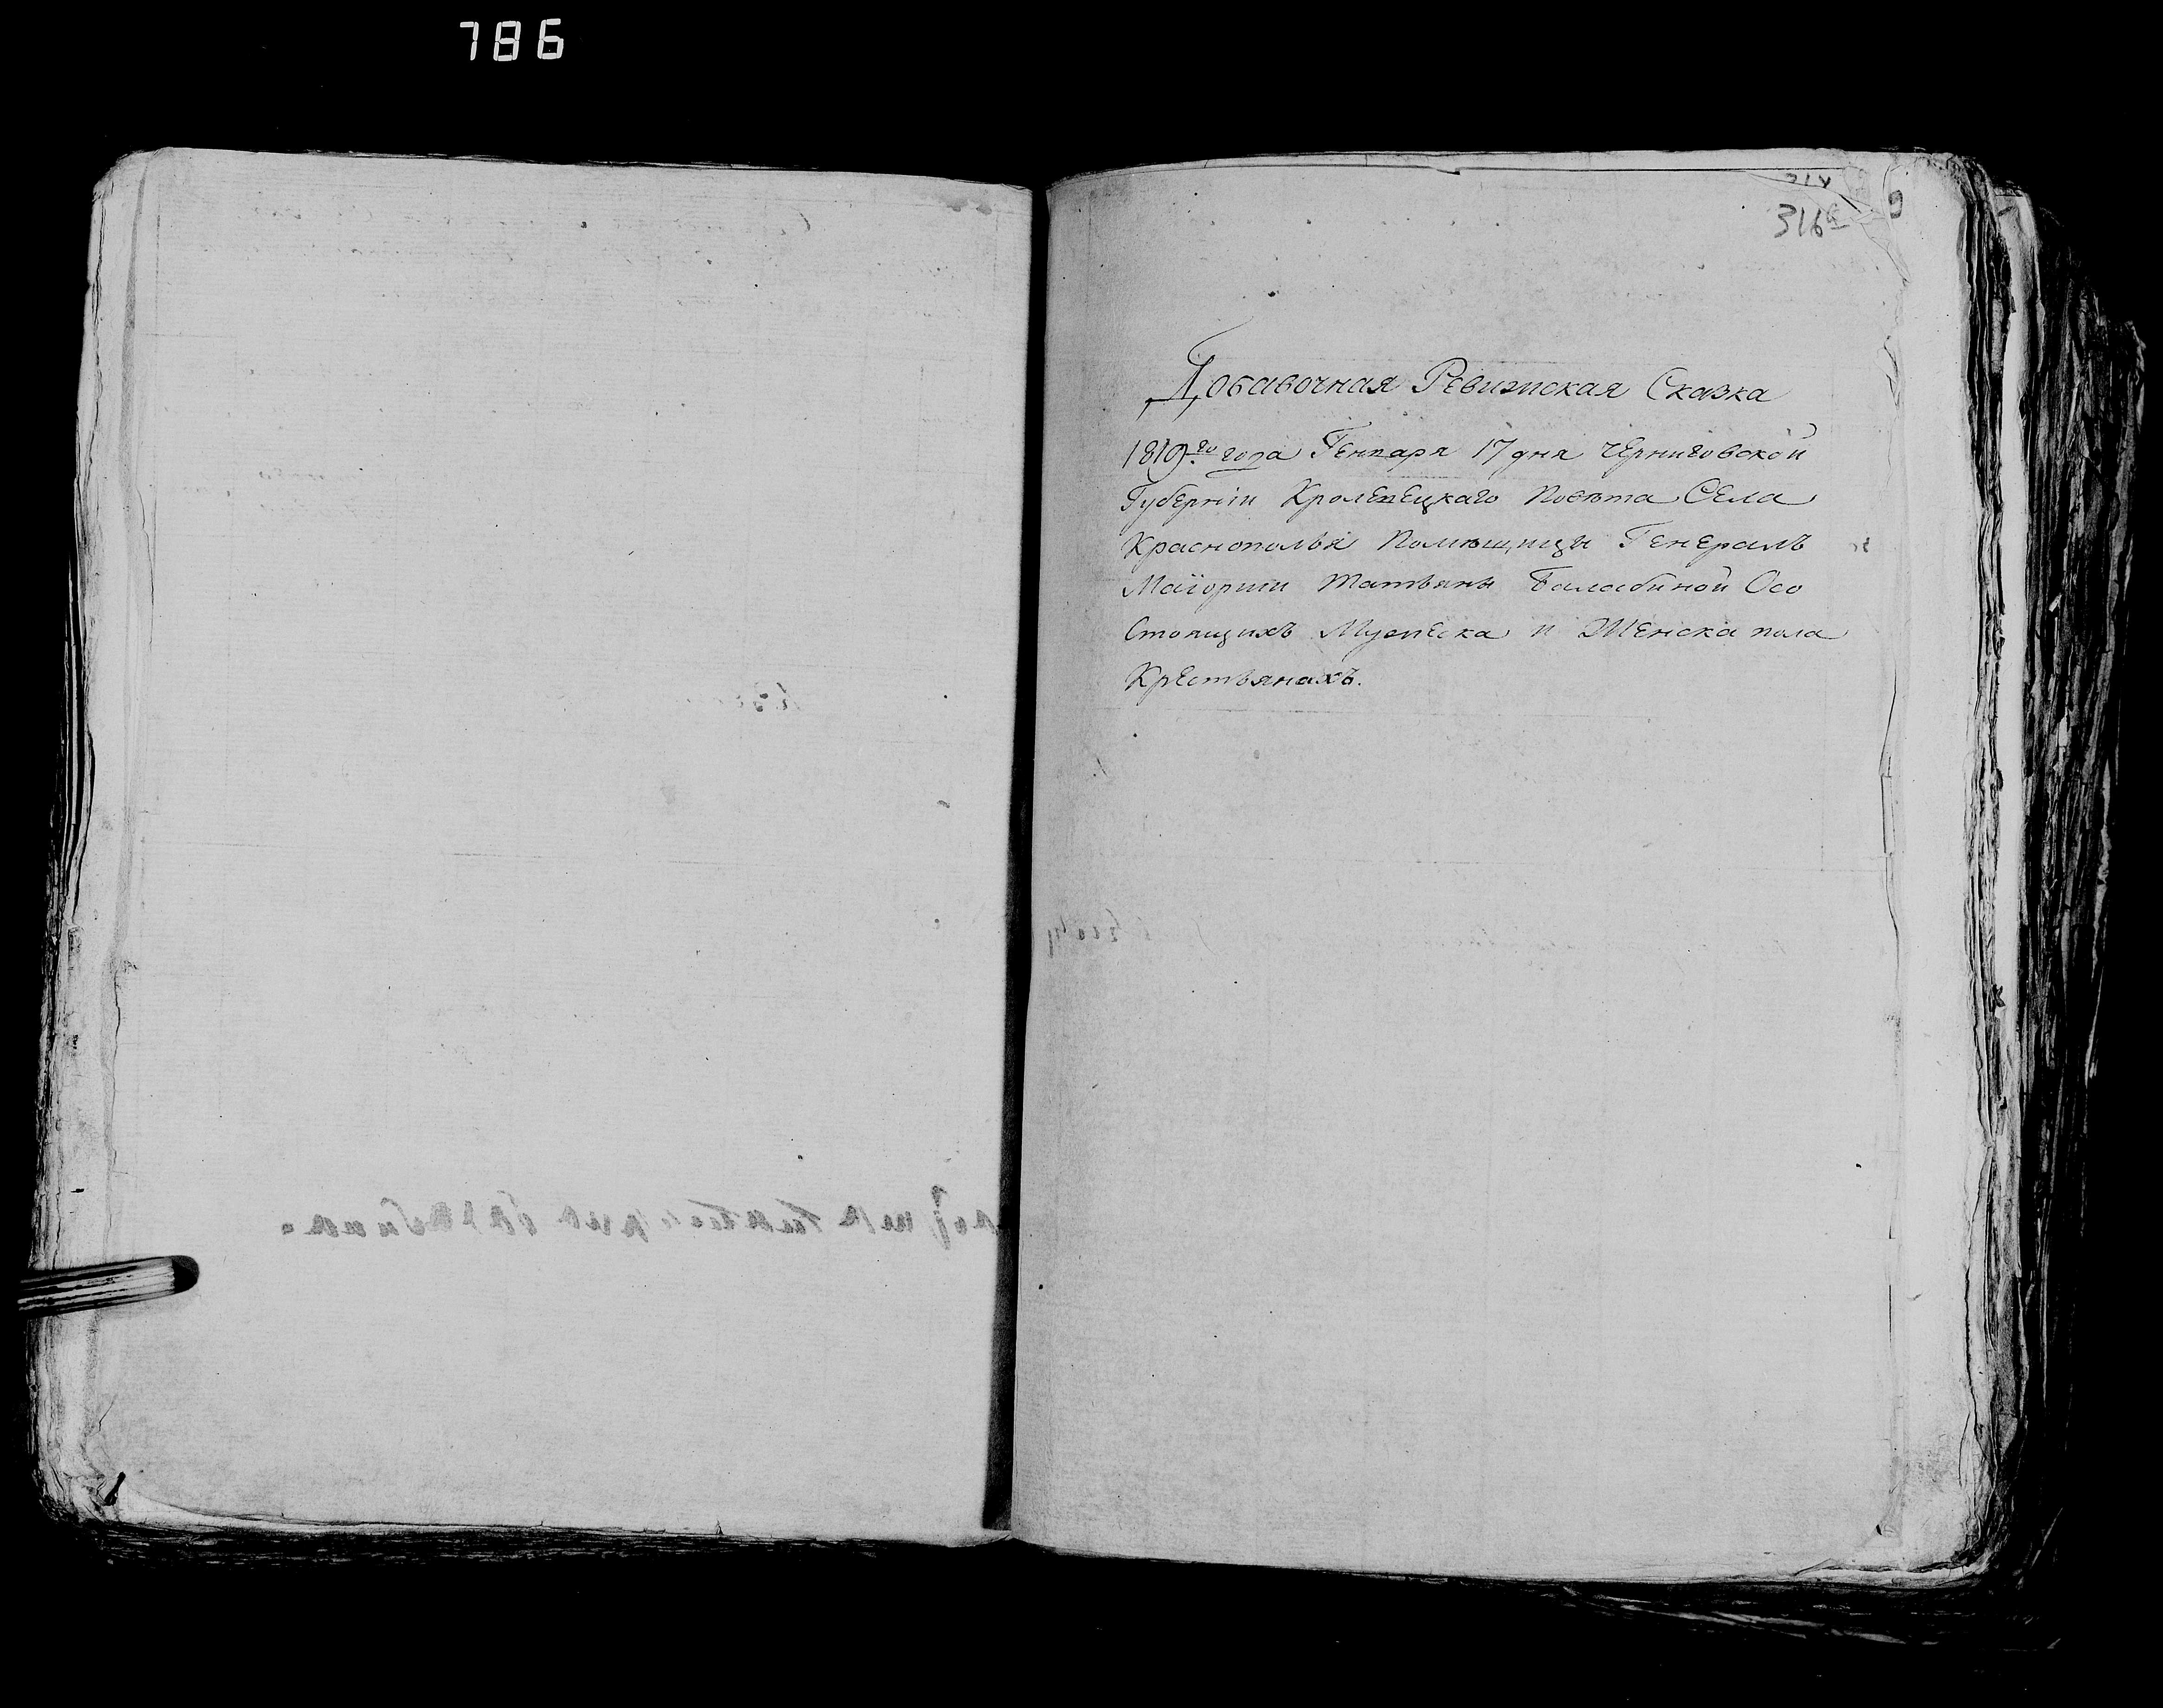 786
316
Добавочная Ревизская Сказка
1819го года Генваря 17 дня Черниговской
Губернии Кролевецкаго Повѣта Села
Краснополья Помѣщицы Генералъ
Маіорши Татьяны Балабиной Осо
Стоящихъ Мужеска и Женска пола
Крестьянахъ.